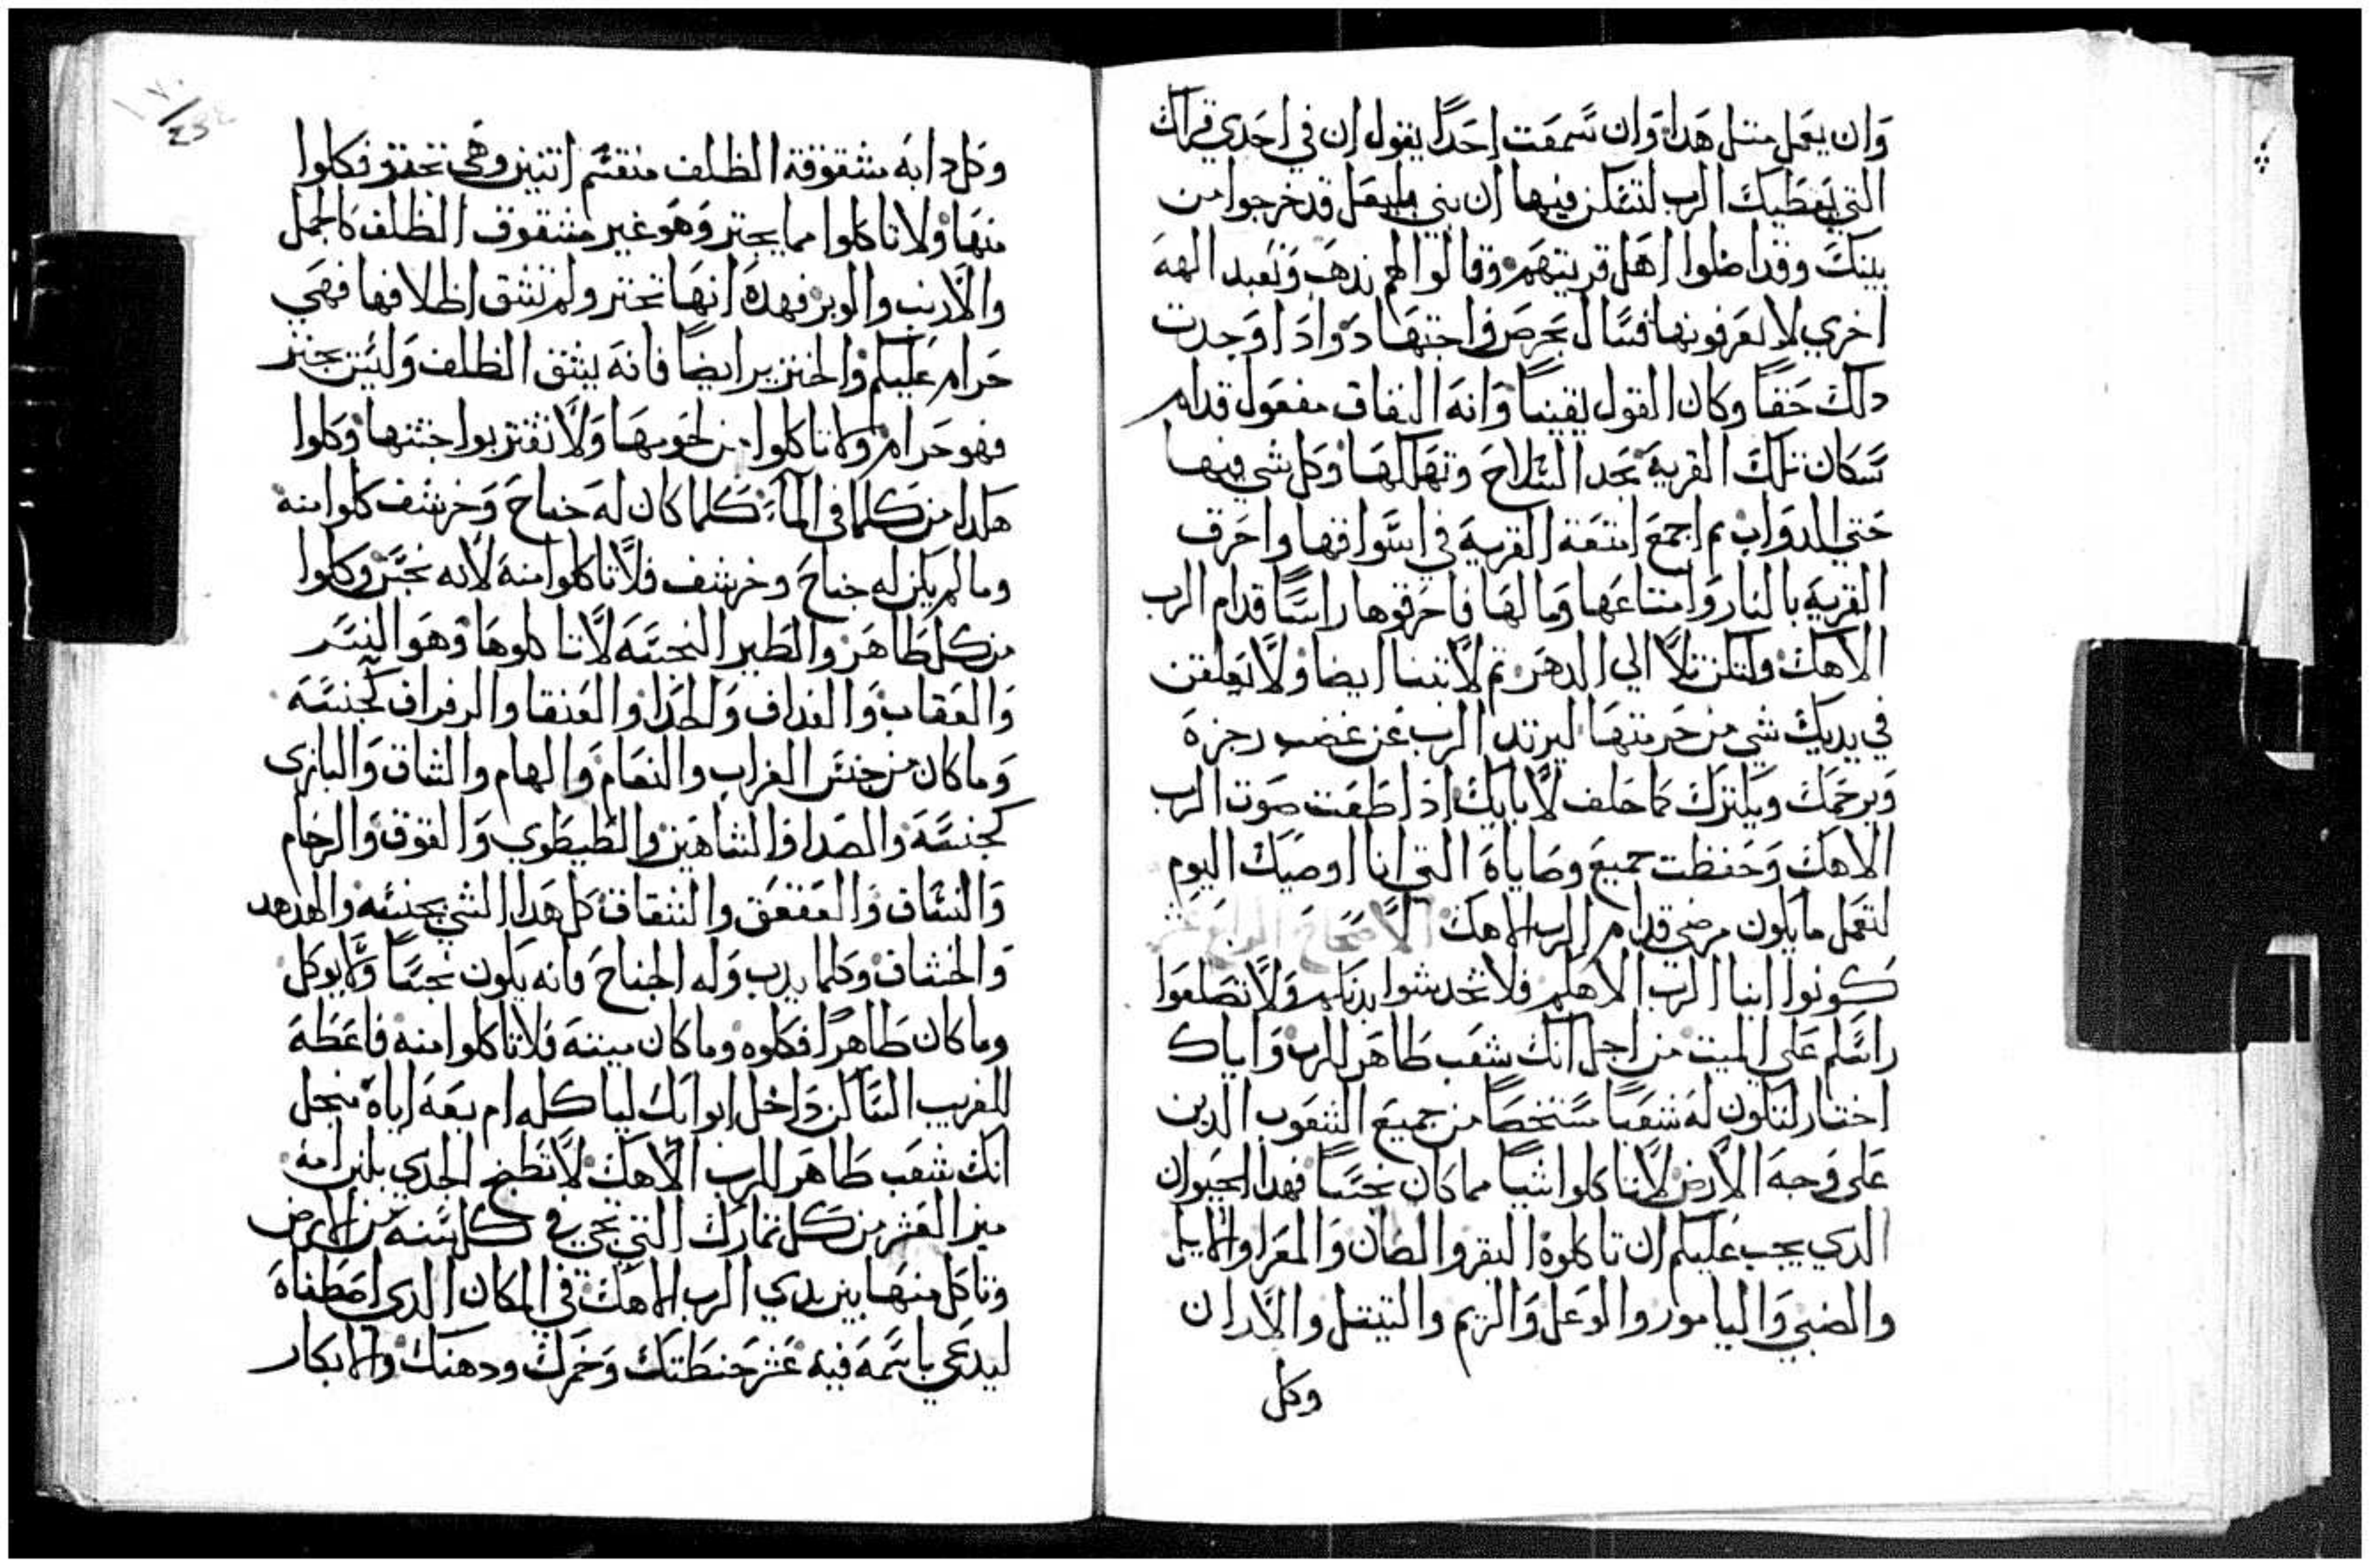 وان يعمل متل هدا وان سمعت احدا يقول ان في احدي قراك
التي يعطيك الرب لتسكن فيها ان بني بليعل قد خرجوا من
بينك وقد اضلوا اهل قريتهم وقالوا لهم ندهب ونعبد الهة
اخري لا تعرفونها فسال بحرص وادا وجدت
دلك حقا وكان القول يقينا وانه النفاق مفعول قدام
سكان تلك القرية بحد السلاح وتهلكها وكل شي فيها
حتي الدواب تم اجمع امتعة القرية في اسواقها واحرق
القرية بالنار وامتاعها ومالها فاحرقوها راسا قدام الرب
الاهك ولتكن تلا الي الدهر تم لا تبنا ايضا ولا تعلقن
في يديك شي من حرمتها ليرتد الرب عن غضب رجزه
ويرحمك ويكترك كما حلف لابايك ادا طعت صوت الرب
الاهك وحفظت جميع وصاياه التي انا اوصيك اليوم
لتعمل ما يكون مرضي قدام الرب الاهك الاصحاح الرابع عشر
كونوا ابنا الرب الاهكم فلا تخدشوا بدنكم ولا تصلعوا
راسكم علي الميت من اجل انك شعب طاهر للرب واياك
اختار لتكون له شعبا مستخصا من جميع الشعوب الدين
علي وجه الارض لا تاكلوا شيا مما كان نجسا فهدا الحيوان
الدي يجب عليكم ان تاكلوه البقر والضان والمعزا والايل
والضبي واليامور والوعل والريم والتيتل والاران
وكل
وكل دابه مشقوقة الظلف منقسم اتنين وهي تجتر فكلوا
منها ولا تاكلوا مما يجتر وهو غير مشقوق الظلف كالجمل
والارنب والوبر فهده انها تجتر ولم تشق اظلافها فهي
حرام عليكم والخنزير ايضا فانه يشق الظلف وليس يجتر
فهو حرام ولا تاكلوا من لحومها ولا تقتربوا جتتها وكلوا
هكدا من كلما في الما كلما كان له جناح وخرشف كلوا منه
وما لم يكن له جناح وخرشف فلا تاكلوا منه لانه نجس وكلوا
من كل طاهر والطير النجسه لا تاكلوها وهو النسر
والعقاب والغداف والحدا والعنقا والرفراف كجنسه
وما كان من جنس الغراب والنعام والهام والشاق والبازي
كجنسه والصدا والشاهين والطيطوي والقوق والرخام
والشاف والعقعق والشقاق كل هدا الشي بجنسه والهدهد
والخشاف وكلما يدب وله الجناح فانه يكون نجسا ولا يوكل
وما كان طاهرا فكلوه وما كان ميتة فلا تاكلوا منه فاعطه
للغريب الساكن داخل ابوابك لياكله ام بعه اياه من اجل
انك شعب طاهر للرب الاهك لا تطبخ الجدي بلبن امه
ميز العشر من كل تمارك التي تجي في كل سنه من الارض
وتاكل منها بين يدي الرب الاهك في المكان الدي اصطفاه
ليدعي باسمه فيه عشر حنطتك وخمرك ودهنك والابكار